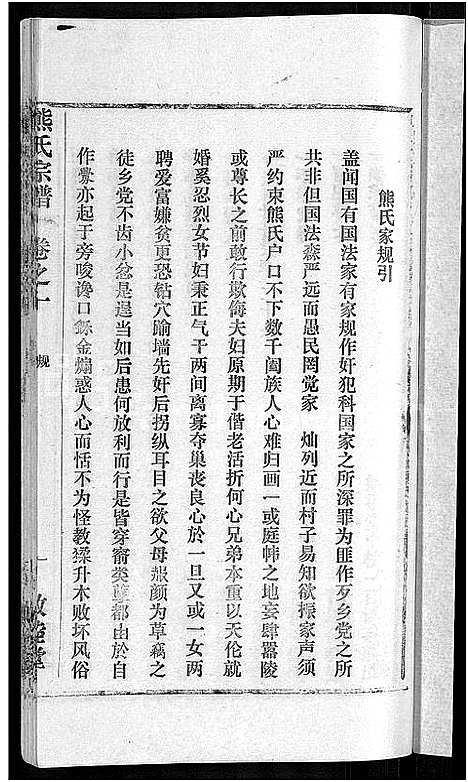 熊氏家规引
盖闻国有国法家有家规作奸犯科国家之所深罪为匪作歹乡党之所
共非但国法森严远而愚民罔觉家 灿列近而村子易知欲振家声须
严约束熊氏户口不下数千阖族人心难归画一或庭帏之地妄肆嚣陵
或尊长之前敢行欺侮夫妇原期于偕老活折何心兄弟本重以天伦就
婚奚忍烈女节妇秉正气于两间离寡夺巢丧良心於一旦又或一女两
聘爱富嫌贫更恐钻穴踰墙先奸后拐纵耳目之欲父母赧颜为草窃之
徒乡党不齿小忿是逞当如后患何放利而行是皆穿窬类 都由於自
作 亦起于旁唆谗口铄金煽惑人心而恬不为怪教猱升木败坏风俗
熊氏宗谱
卷之
规
一
堂